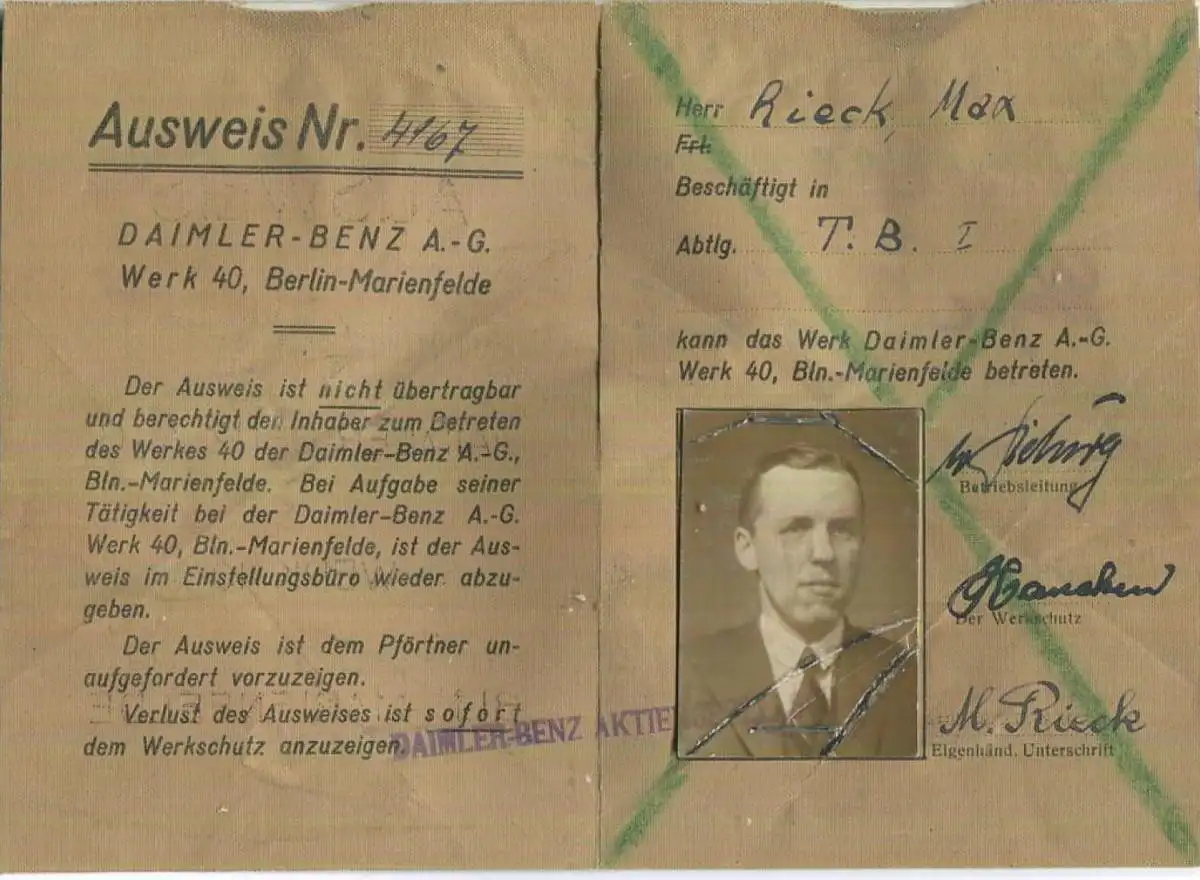 Ausweis Nr. 4167
DAIMLER-BENZ A.-G.
Werk 40, Berlin-Marienfelde
Der Ausweis ist nicht übertragbar
und berechtigt den Inhaber zum Betreten
des Werkes 40 der Daimler-Benz A.-G.,
Bln.-Marienfelde. Bei Aufgabe seiner
Tätigkeit bei der Daimler-Benz A.-G.
Werk 40, Bln.-Marienfelde, ist der Aus-
weis im Einstellungsbüro wieder abzu-
geben.
Der Ausweis ist dem Pförtner un-
aufgefordert vorzuzeigen.
Verlust des Ausweises ist sofort
dem Werkschutz anzuzeigen.
DAIMLER-BENZ AKTIE
Herr Rieck, Max
Frl.
Beschäftigt in
Abtlg. T. B. I
kann das Werk Daimler-Benz A.-G.
Werk 40, Bln.-Marienfelde betreten.
Betriebsleitung
Der Werkschutz
M. Rieck
Eigenhänd. Unterschrift